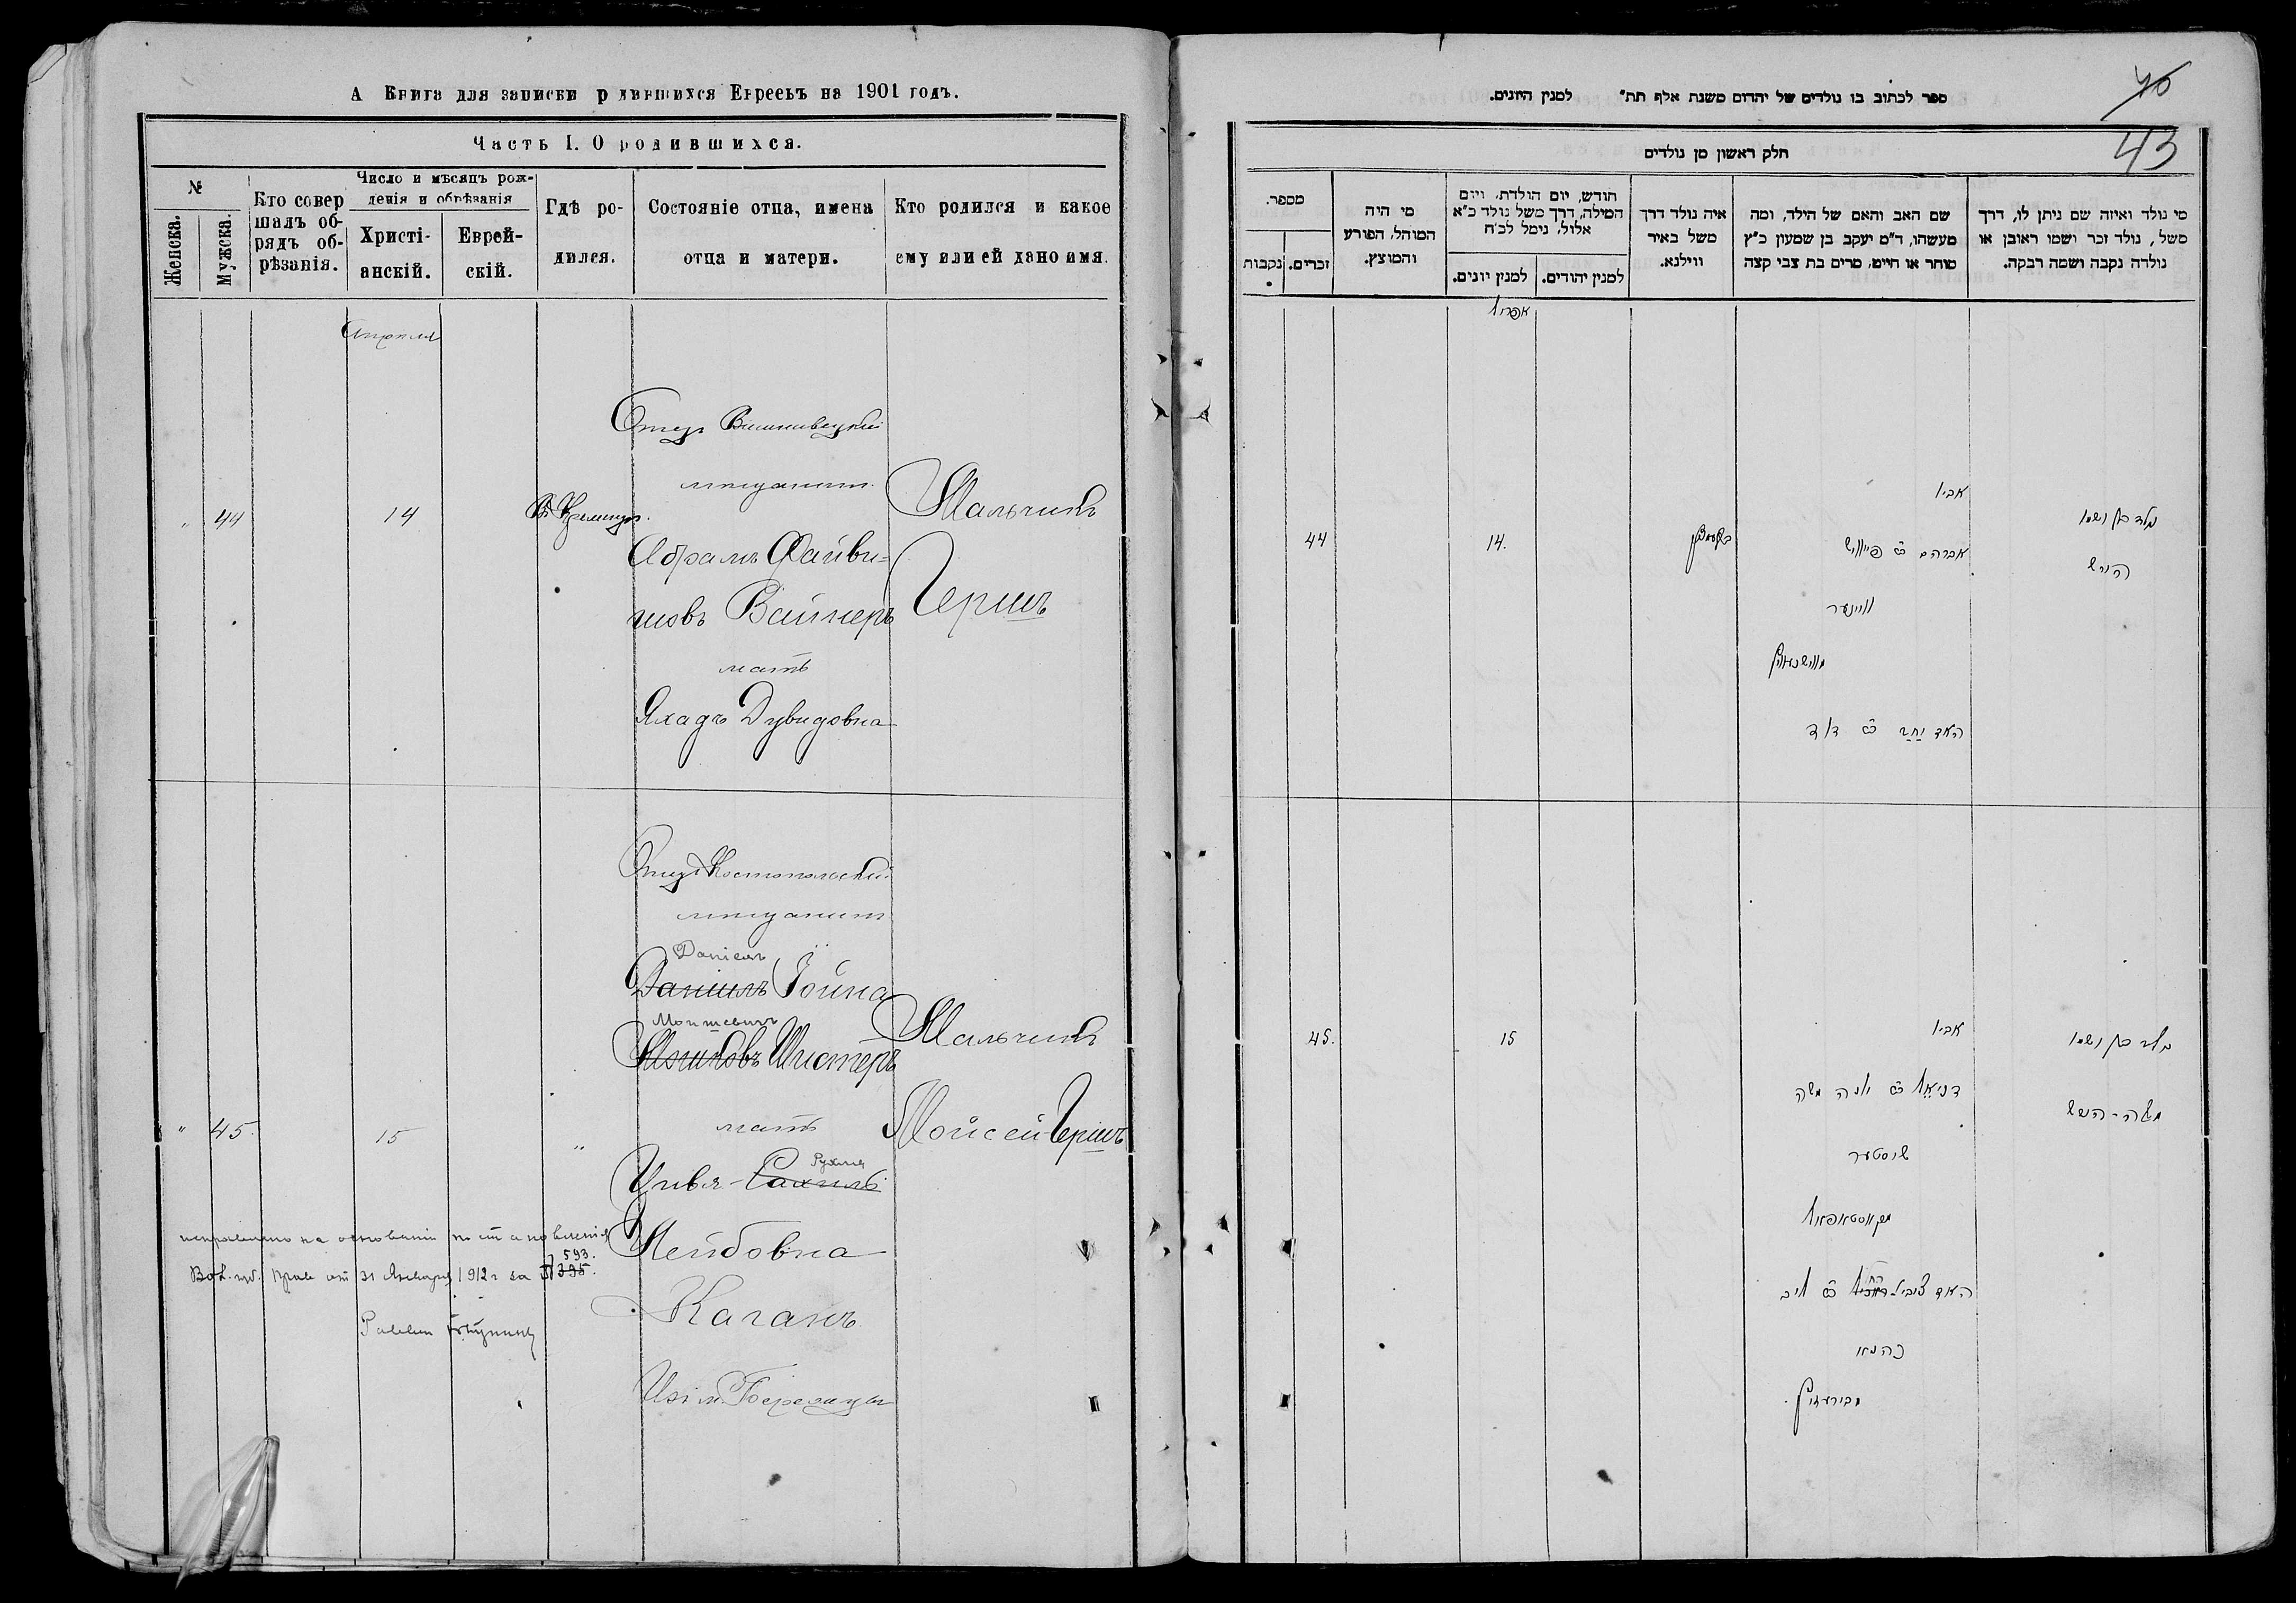 А Книга для записки родившихся Евреевъ на 1901 годъ.
Часть I. О родившихся.
№
Женска.
Мужска.
Кто совер
шалъ об-
рядъ об-
рѣзанія.
Число и мѣсяцъ рож-
денія и обрѣзанія
Христі-
анскій.
Еврей-
скій.
Гдѣ ро-
дился.
Состояніе отца, имена
отца и матери.
Кто родился и какое
ему или ей дано имя.
Апрѣля
" 44
14
Отецъ Вишневецкій
мѣщанинъ
Абрамъ Файви-
шовъ Вайнеръ
мать
Дувидовна
Мальчикъ
Гершъ
" 45.
15
"
Отецъ Костопольскій
мѣщанинъ
Даніель
Даніилъ Іойна
Мошкевичъ
Шустеръ
мать
Рухля
Цивья-Рахиль
Лейбовна
Каганъ
Изъ м. Бережцы
Мальчикъ
Мойсей Гершъ
исправлено на основаніи постановленія
Вол. губ. Прав. отъ 31 Января 1912 г за № 395.
593.
Раввинъ
ספר לכתוב בו נולדים של יהדום משנת אלף תת״ למנין היונים.
43
חלק ראשון מן נולדים
מספר.
נקבות
זכרים.
מי היה
המוהל, הפורע
והמוצץ.
חודש, יום הולדת, ויום
המילה, דרך משל נולד כ״א
אלול, נימל לכ״ח
למנין יונים.
למנין יהודים.
איה נולד דרך
משל באיר
ווילנא.
שם האב והאם של הילד, ומה
מעשהו, ד״מ יעקב בן שמעון כ״ץ
סוחר או חייט, מרים בת צבי קצה
מי נולד ואיזה שם ניתן לו, דרך
משל, נולד זכר ושמו ראובן או
נולדה נקבה ושמה רבקה.
אפריל
44
14.
אביו
אברהם פייוויש
וויינער
האם דוד
נולד בן ושמו
הירש
45.
15
אביו
דניאל יונה משה
שוסטער
האם ליב
כהנא
נולד בן ושמו
משה-הירש